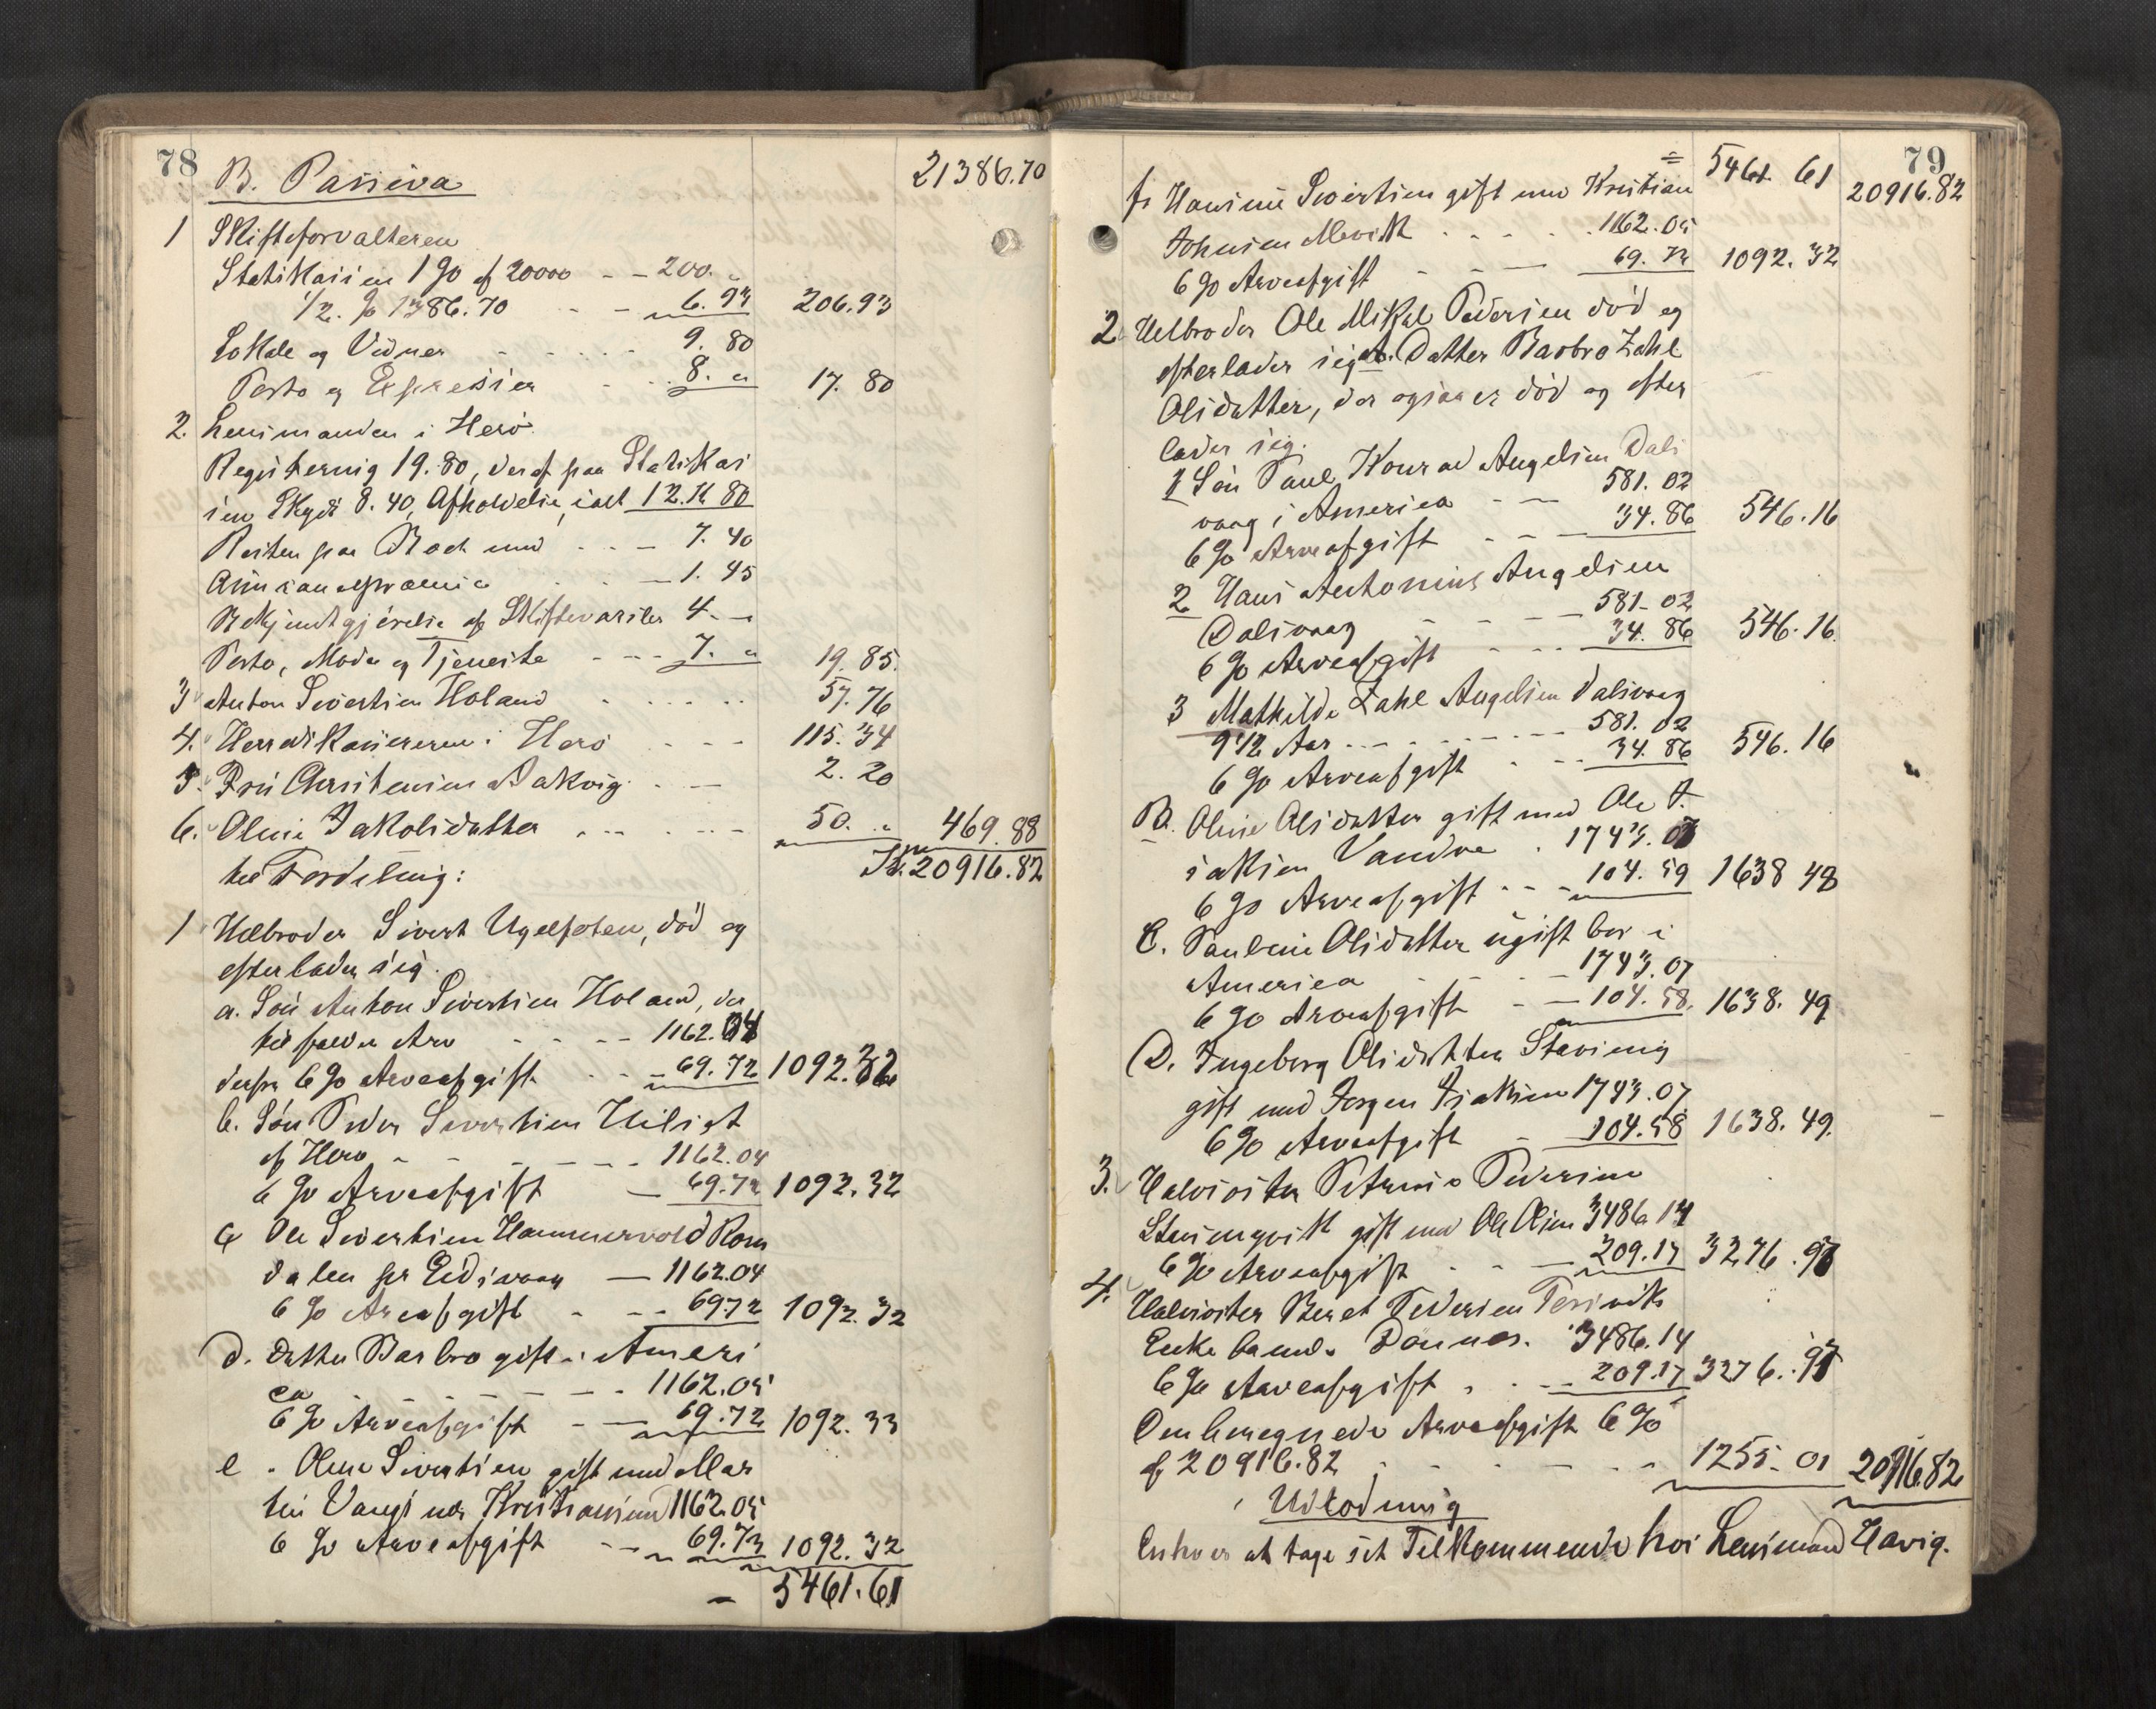 78
B. Passiva
21386.70
1 Skifteforvalteren
Statskassen 1 % af 20000 - - 200. "
1/2 % 1386.70 - - 6.93 206.93
Lokale og Vidner - - - - - 9. 80
Porto og Expresser - - 8. " 17. 80
2. Lensmanden i Herö
Registering 19.80, deraf paa Statskas
sen Skyds 8.40, Afholdelse, ialt 12.K 80
Resten paa Boet med - - - 7. 40
- 1. 45
Bekjendtgjörelse af Skiftevarsler 4. - "
Porto, Møde og Tjeneste - - - 7. " 19. 85.
3 Anton Sivertsen Holand - - - - - 57. 76
4. Herredskassereren i Herö - - - - 115. 34
5. Fru Christensen Aakvig - - 2. 20
6. Oline Jakobsdatter - - - - - 50. " 469. 88
til Fordeling: Kr. 20916.82
1 Helbroder Sivert Ugelfoten, död og
efterlader sig.
a. Sön Anton Sivertsen Holand, der
tilfalder Arv - - - - 1162.04
derfra 6 % Arveafgift - - - 69.72 1092.32
b. Sön Peder Sivertsen
af Herö - - - - - - 1162.04
6 % Arveafgift - 69.72 1092.32
c Ole Sivertsen Hammervold Roms
dalen pr Eidsvaag - 1162.04
6 % Areafgift - - - 69.72 1092.32
d. Datter Barbro gift i Ameri
ca - - - - - - - 1162.05
6 % Arveafgift - - 69.72 1092.33
e. Oline Sivertsen gift med Mar
tin Vangsnes Kristiansund 1162.05
6 % Arveafgift - - 69.73 1092.32
- 5461.61
79
= 5461. 61 20916.82
f. Hansine Sivertsen gift med Kristian
Johnsen Mevik - - - - 1162.05
6 % Arveafgift - - - 69. 73 1092. 32
2. Helbroder Ole Mikal Pedersen död og
efterlader sig A. Datter Barbro Zahl
Olsdatter, der ogsaa er död og efter
lader sig.
1 Sön Paul Konrad Angelsen Dals
vaag i America - - 581. 02
6 % Arveafgift - - - 34. 86 546.16
2 Hans Antonius Angelsen
Dalsvaag - - - - 581-02
6 % Arveafgift - - - 34. 86 546. 16.
3 Mathilde Zahl Angelsen Dalsvaag
9 1/2 Aar - - - - - - - 581. 02
6 % Arveafgift - - - 34. 86 546. 16
B. Oline Olsdatter gift med Ole I.
saksen Vandve . 1743. 07
6 % Arveafgift - - - 104. 59 1638 48
C. Pauline Olsdatter ugift bor i
America - - - 1743. 07
6 % Arveafgift - - 104. 58. 1638. 49
D. Ingeborg Olsdatter Stavseng
gift med Jörgen Isaksen 1743. 07
6 % Arveafgift - 104. 58 1638. 49.
3. Halvsöster Petrine Pedersen
gift med Ole Olsen 3486 14
6 % Arveafgift - - - 209. 17 3276. 97
4. Halvsöster Beret Pedersen
Enke Dönnes. 3486. 14
6 % Aarveafgift - - - 209.17 3276. 97
Den beregnede Arveafgift 6 %
af 20916.82 - - - - - - 1255. 01 20916.82
Udlodning
Enhver at tage sit Tilkommende hos Lensmand Havig.